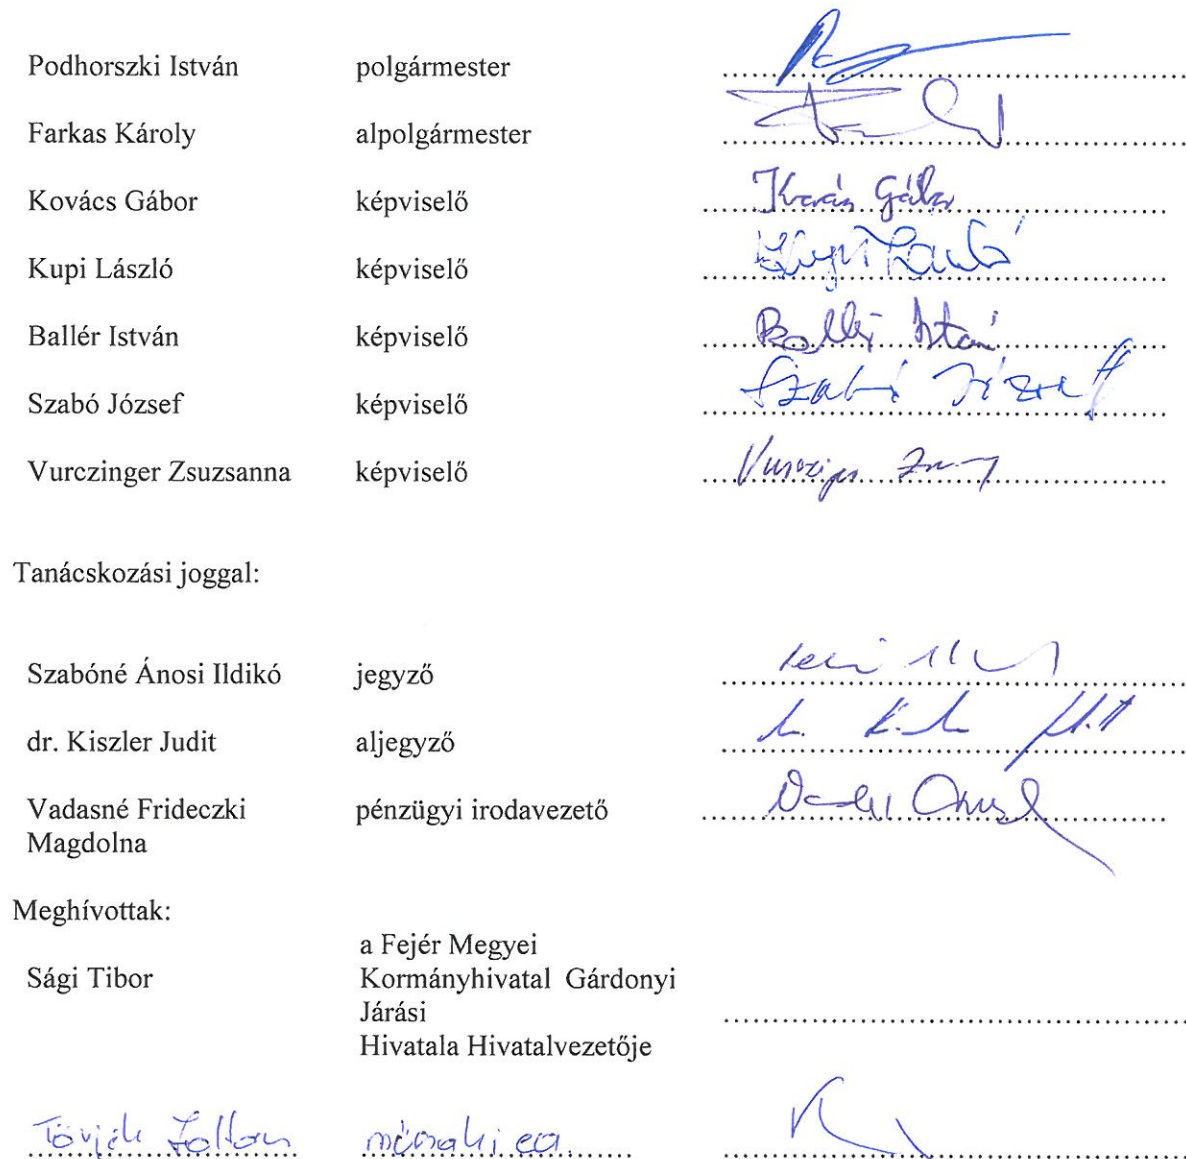 Podhorszki István polgármester
Farkas Károly alpolgármester
Kovács Gábor képviselő Kovács Gábor
Kupi László képviselő Kupi László
Ballér István képviselő Ballér István
Szabó József képviselő Szabó József
Vurczinger Zsuzsanna képviselő
Tanácskozási joggal:
Szabóné Ánosi Ildikó jegyző
dr. Kiszler Judit aljegyző
Vadasné Frideczki pénzügyi irodavezető
Magdolna
Meghívottak:
a Fejér Megyei
Sági Tibor Kormányhivatal Gárdonyi
Járási
Hivatala Hivatalvezetője
Zoltán műszaki ea.